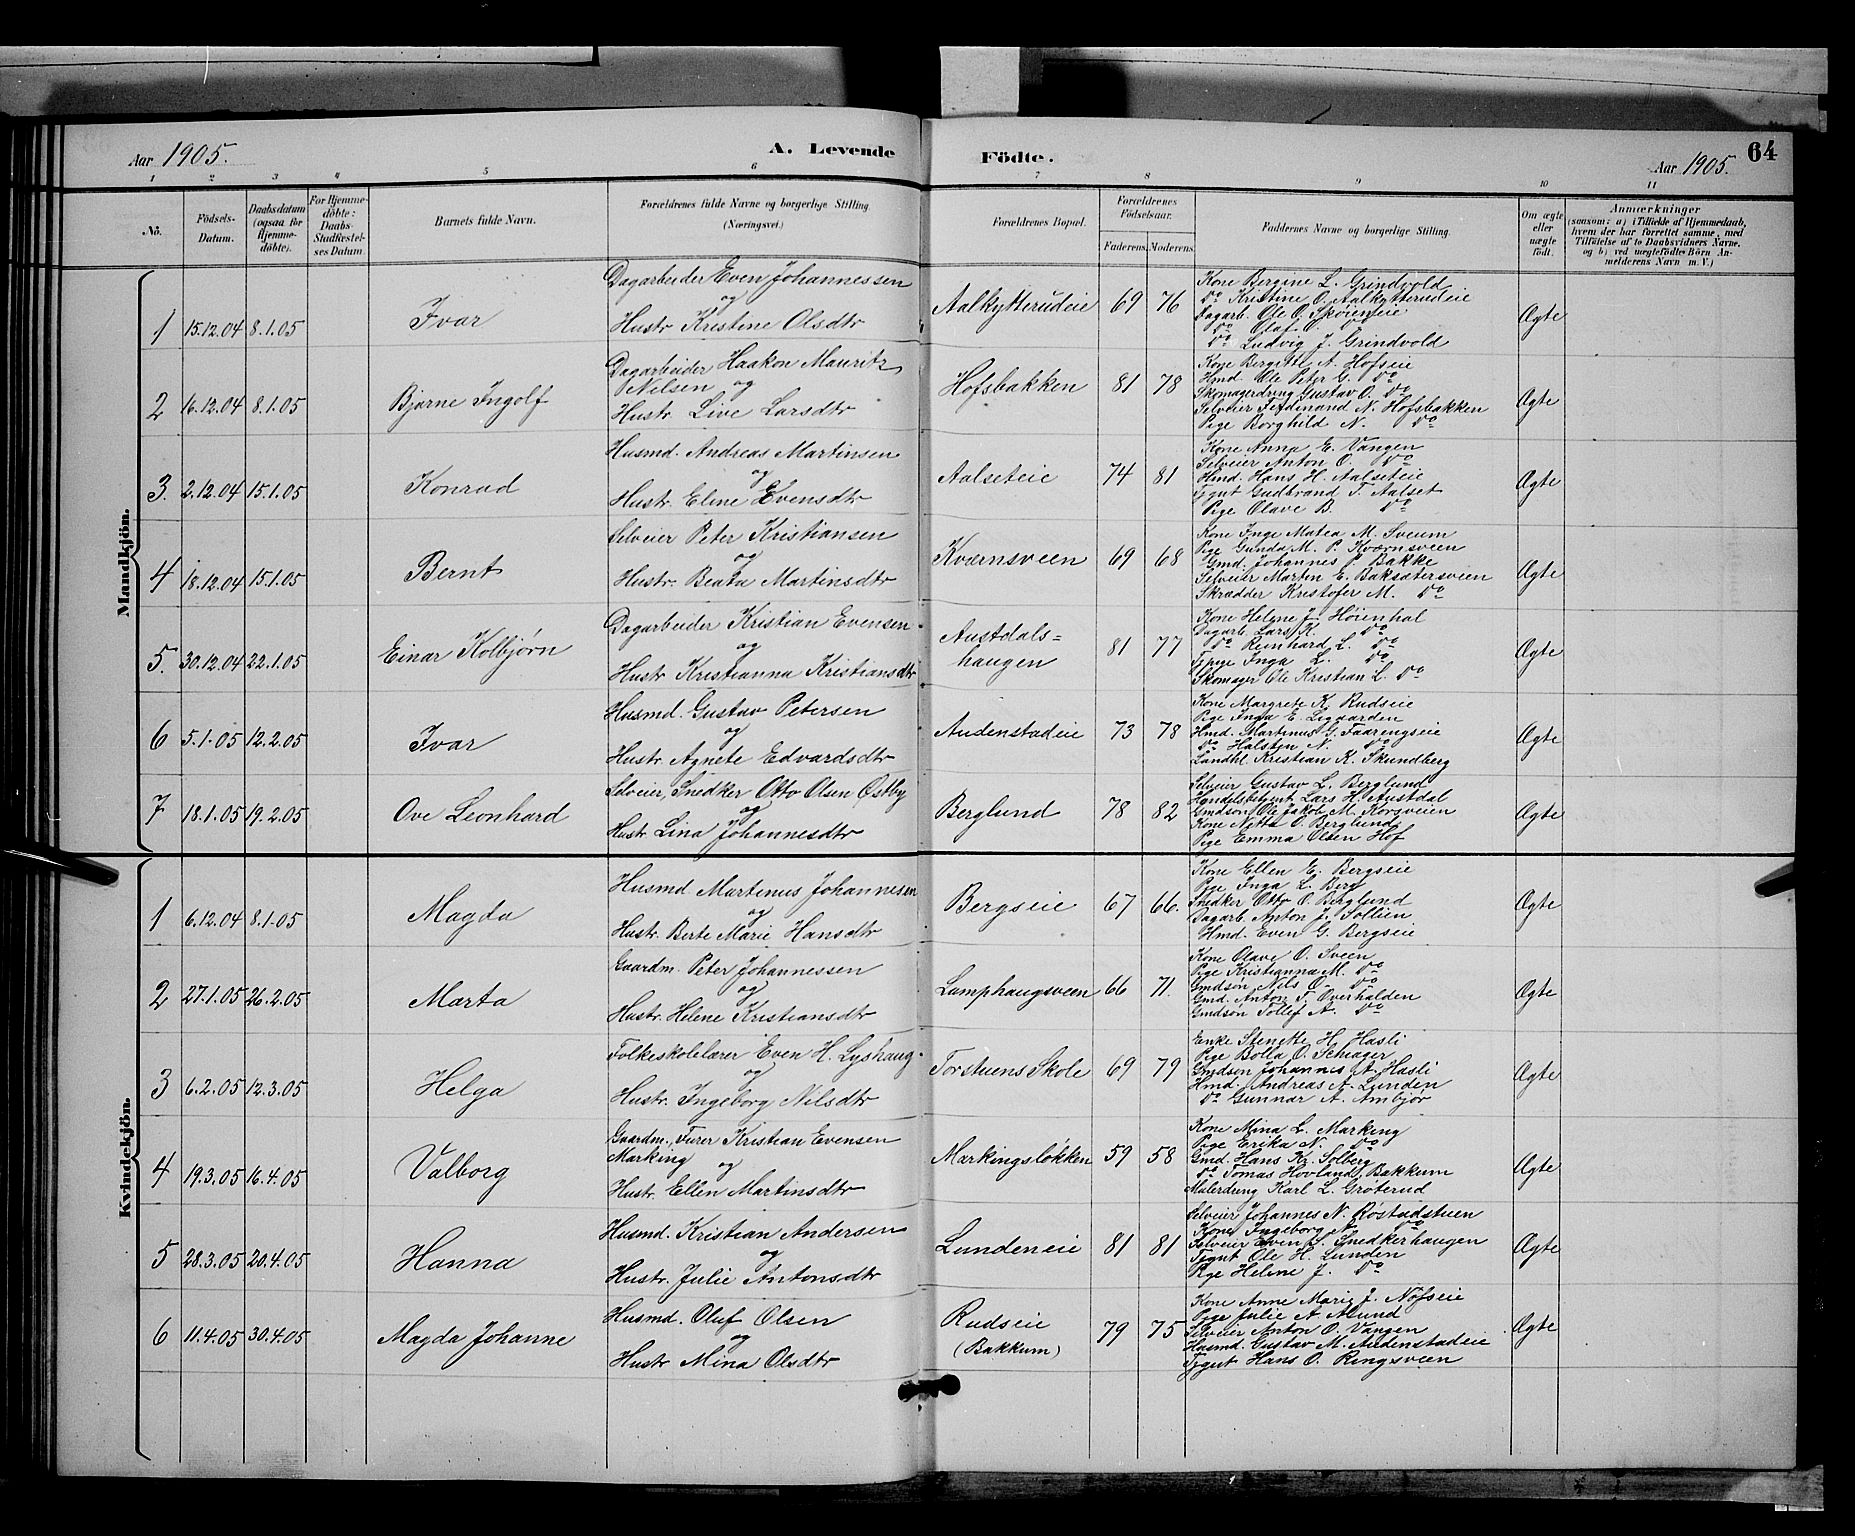 Aar 1905. A. Levende Födte. Aar 1905. 64
1 2 3 4 5 6 7 8 9 10 11
No.
Födsels-Datum.
Daabsdatum (ogsaa for Hjemmedöbte).
For Hjemmedöbte: Daabs-Stadfestelses Datum
Barnets fulde Navn.
Forældrenes fulde Navne og borgerlige Stilling. (Næringsvei.)
Forældrenes Bopæl.
Forældrenes Födselsaar.
Faderens. Moderens.
Faddernes Navne og borgerlige Stilling.
Om ægte eller uægte födt.
Anmærkninger
(saasom: a) i Tilfælde af Hjemmedaab, hvem der har forrettet samme, med Tilföielse af to Daabsvidners Navne. og b) ved uægtefödte Börn Anmelderens Navn m. V.)
Mandkjön.
1 15.12.04 8.1.05 Ivar
Dagarbeider Even Johannessen
og
Hustr Kristine Olsdtr
Aalkytterudeie 69 76
Kone Bergine L. Grindvold
Do Kristine O. Aalkytterudeie
Dagarb. Ole O. Skøieneie
Do Olaf O. Do
Do Ludvig J. Grindvold
Ægte
2 16.12.04 8.1.05 Bjarne Ingolf
Dagarbeider Haakon Mauritz
Nilsen og
Hustr Live Larsdtr
Hofsbakken 81 78
Kone Bergitte A. Hofseie
Hmd. Ole Peter G. Do
Skomagerdreng Gustav O. Do
Selveier Ferdinand N. Hofsbakken
Pige Borghild N. Do
Ægte
3. 2.12.04 15.1.05 Konrad
Husmd. Andreas Martinsen
og
Hustr. Eline Evensdtr
Aalseteie 74 81
Kone Anna E. Vangen
Selveier Anton O. Do
Hmd. Hans H. Aalseteie
Tjgut Gudbrand T. Aalset
Pige Olave B. Do
Ægte
4 18.12.04 15.1.05 Bernt
Selveier Peter Kristiansen
og
Hustr. Beata Martinsdtr
Kværnsveen 69 68
Kone Inge Matea M. Sveum
Pige Gunda M. P. Kværnsveen
Gmd. Johannes P. Bakke
Selveier Martin E. Baksætersveen
Skrædder Kristofer M. Do
Ægte
5. 30.12.04 22.1.05 Einar Kolbjørn
Dagarbeider Kristian Evensen
og
Hustr Kristianna Kristiansdtr
Austdals=
haugen 81 77
Kone Helene J. Høienhal
Dagarb. Lars K. Do
Do Reinhard L. Do
Tjpige Inga L. Do
Skomager Ole Kristian L. Do
Ægte
6 5.1.05 12.2.05 Ivar
Husmd. Gustav Petersen
og
Hustr. Agnete Edvardsdtr
Audenstadeie 73 78
Kone Margrete K. Rudseie
Pige Inga E. Liggarden
Hmd. Martinus G. Faarengseie
Do Halsten N. Do
Landhl. Kristian K. Skundberg
Ægte
7 18.1.05 19.2.05 Ove Leonhard
Selveier, Snedker Otto Olsen Østby
og
Hustr. Lina Johannesdtr
Berglund 78 82
Selveier Gustav L. Berglund
Handelsbetjent Lars H. Austdal
Gmdsøn Ole Jakob M. Korsveien
Kone Netta O. Berglund
Pige Emma Olsen Hof
Ægte
Kvindekjön.
1 6.12.04 8.1.05 Magda
Husmd Martinus Johannesen
og
Hustr. Berte Marie Hansdtr
Bergseie 67 66.
Kone Ellen E. Bergseie
Pige Inga L. Berg
Snedker Otto O. Berglund
Dagarb. Anton J. Sollien
Hmd. Even G. Bergseie
Ægte
2 27.1.05 26.2.05 Marta
Gaardm. Peter Johannessen
og
Hustr. Helene Kristiansdtr
Lamphaugsveen 66 71.
Kone Olave O. Sveen
Pige Kristianna M. Do
Gmdsøn Nils O. Do
Gmd. Anton T. Overhalden
Gmdsøn Tollef A. Do
Ægte
3 6.2.05 12.3.05 Helga
Folkeskolelærer Even H. Lyshaug
og
Hustr. Ingeborg Nilsdtr
Torstuens Skole 69 79
Enke Stenette H. Hasli
Pige Bolla O. Schiager
Gmdsøn Johannes A. Hasli
Hmd. Andreas A. Lunden
Do Gunnar A. Ambjør
Ægte
4 19.3.05 16.4.05 Valborg
Gaardm., Furer Kristian Evensen
Marking og
Hustr. Ellen Martinsdtr
Markingsløkken 59 58
Kone Mina L. Marking
Pige Erika N. Do
Gmd. Hans Kr. Solberg
Do Tomas Hovland, Bakkum
Malerdreng Karl L. Grøterud
Ægte
5 28.3.05 20.4.05 Hanna
Husmd. Kristian Andersen
og
Hustr. Julie Antonsdtr
Lundeneie 81 81
Selveier Johannes N. Rostadstuen
Kone Ingeborg N. Do
Selveier Even J. Snedkerhaugen
Tjgut Ole H. Lunden
Pige Helene J. Do
Ægte
6 11.4.05 30.4.05 Magda Johanne
Husmd. Oluf Olsen
og
Hustr Mina Olsdtr
Rudseie
(Bakkum) 79 75
Kone Anne Marie J. Nøfseie
Pige Julie A. Aasund
Selveier Anton O. Vangen
Husmd. Gustav M. Audenstadeie
Tjgut Hans O. Ringsveen
Ægte